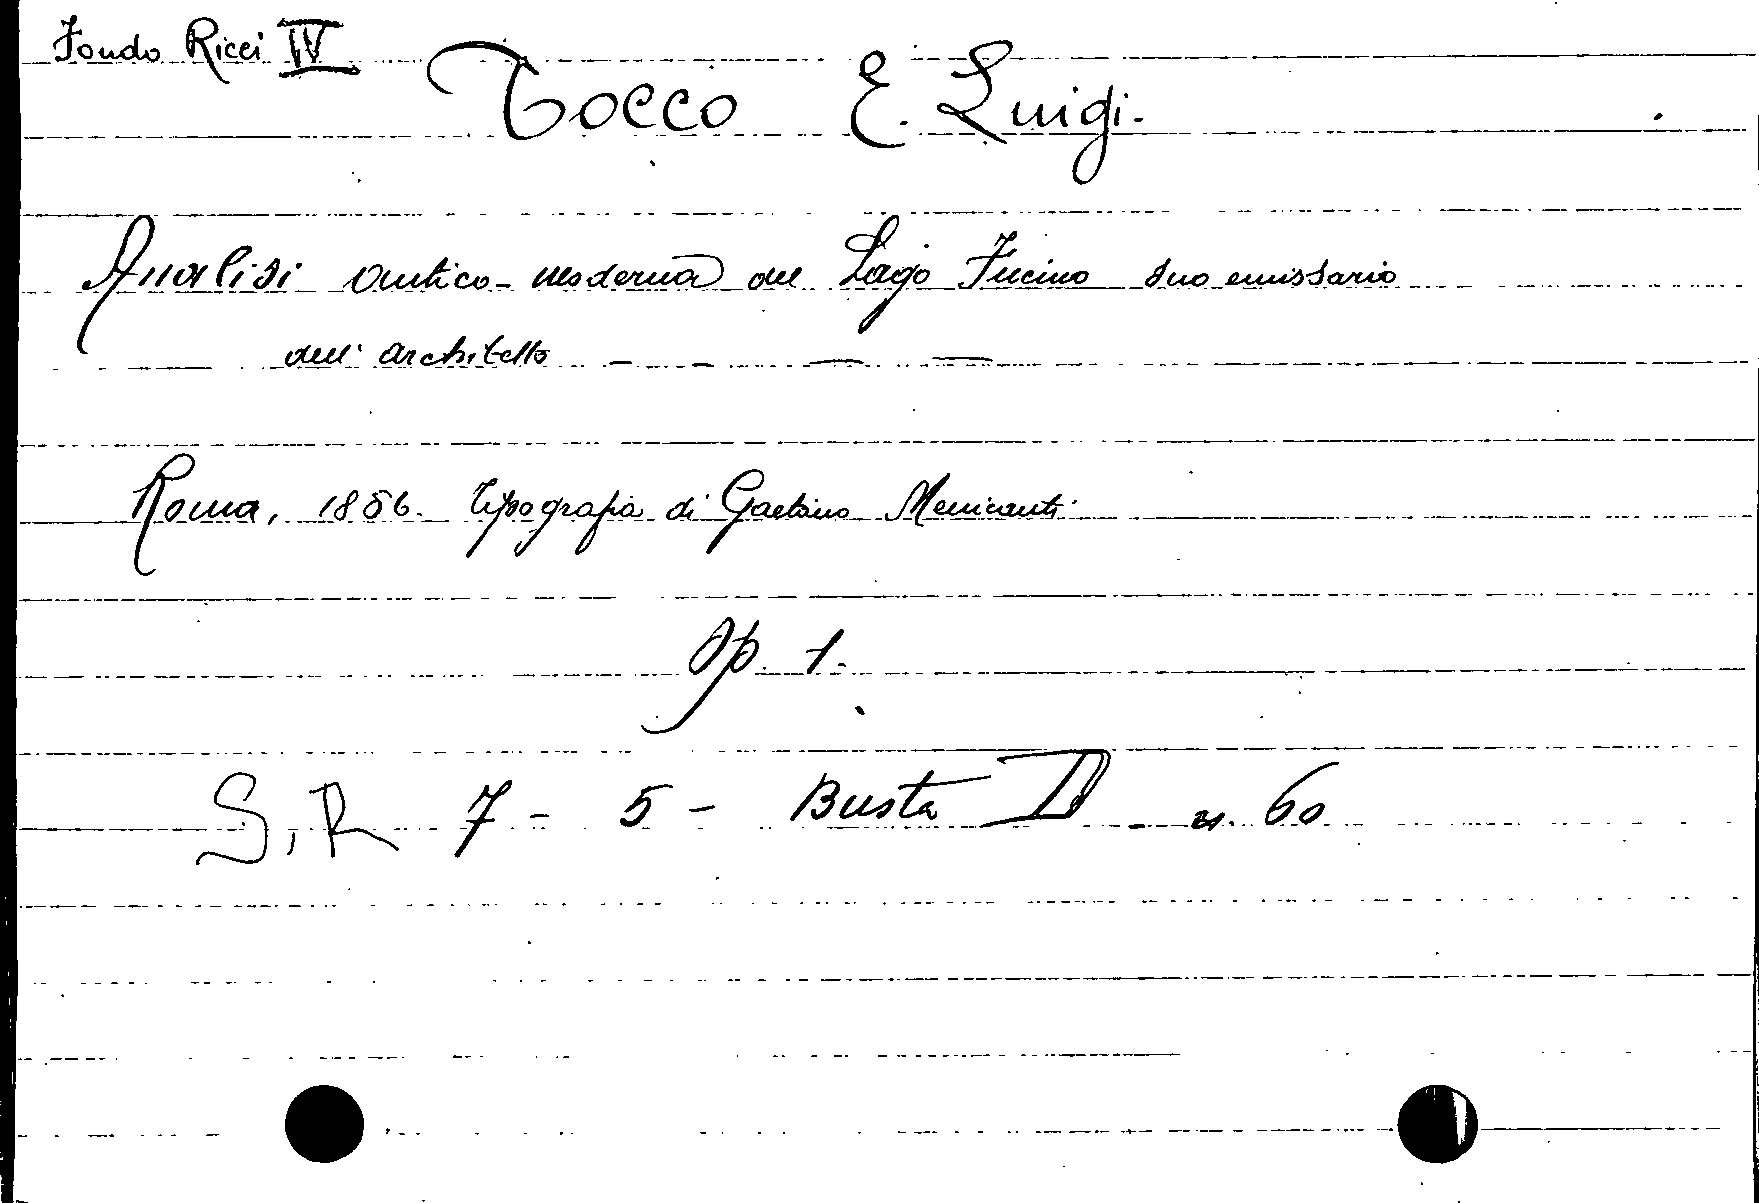 Fondo Ricci IV
Tocco E. Luigi.
Analisi antico-moderna del Lago Fucino suo emissario
dell'architetto - - - -
Roma, 1856. Tipografia di Gaetano Menicanti
Op. 1.
S, R 7 - 5 - Busta D - n. 60